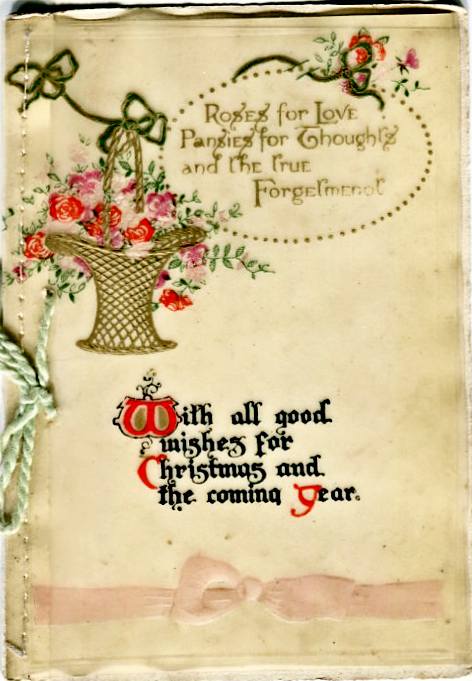 Roses for Love
Pansies for Thoughts
and the true
Forgetmenot
With all good
wishes for
Christmas and
the coming year.